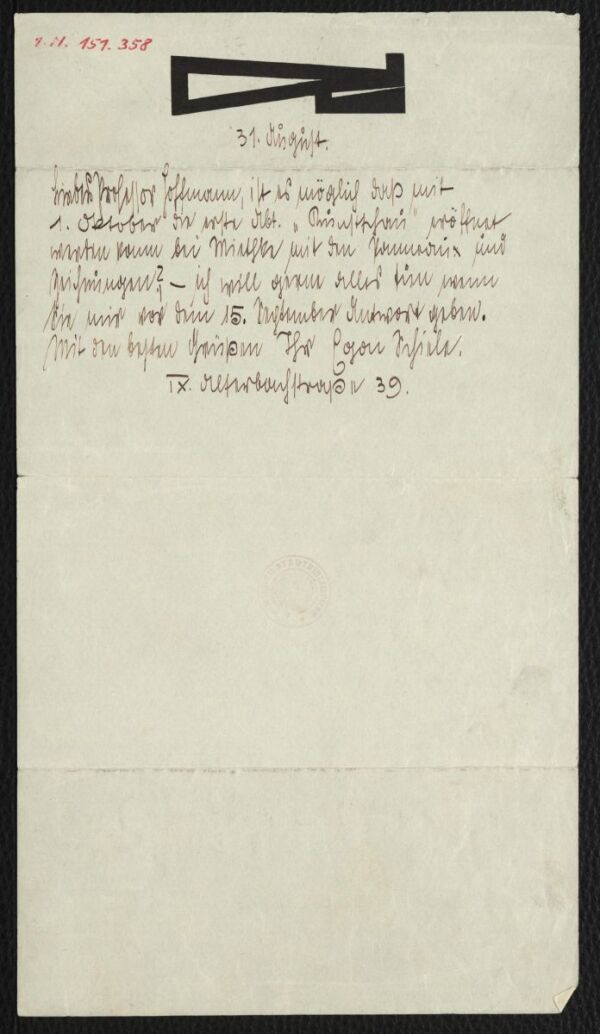 I.N. 151.358
31. August.
Lieber Professor Hoffmann, ist es möglich daß mit
1. Oktober die erste Abt. „Kunstschau" eröffnet
werden kann bei Miethke mit den Panneaux und
Zeichnungen? – ich will gerne alles tun wenn
Sie mir vor dem 15. September Antwort geben.
Mit den besten Grüßen Ihr Egon Schiele.
IX. Alserbachstraße 39.